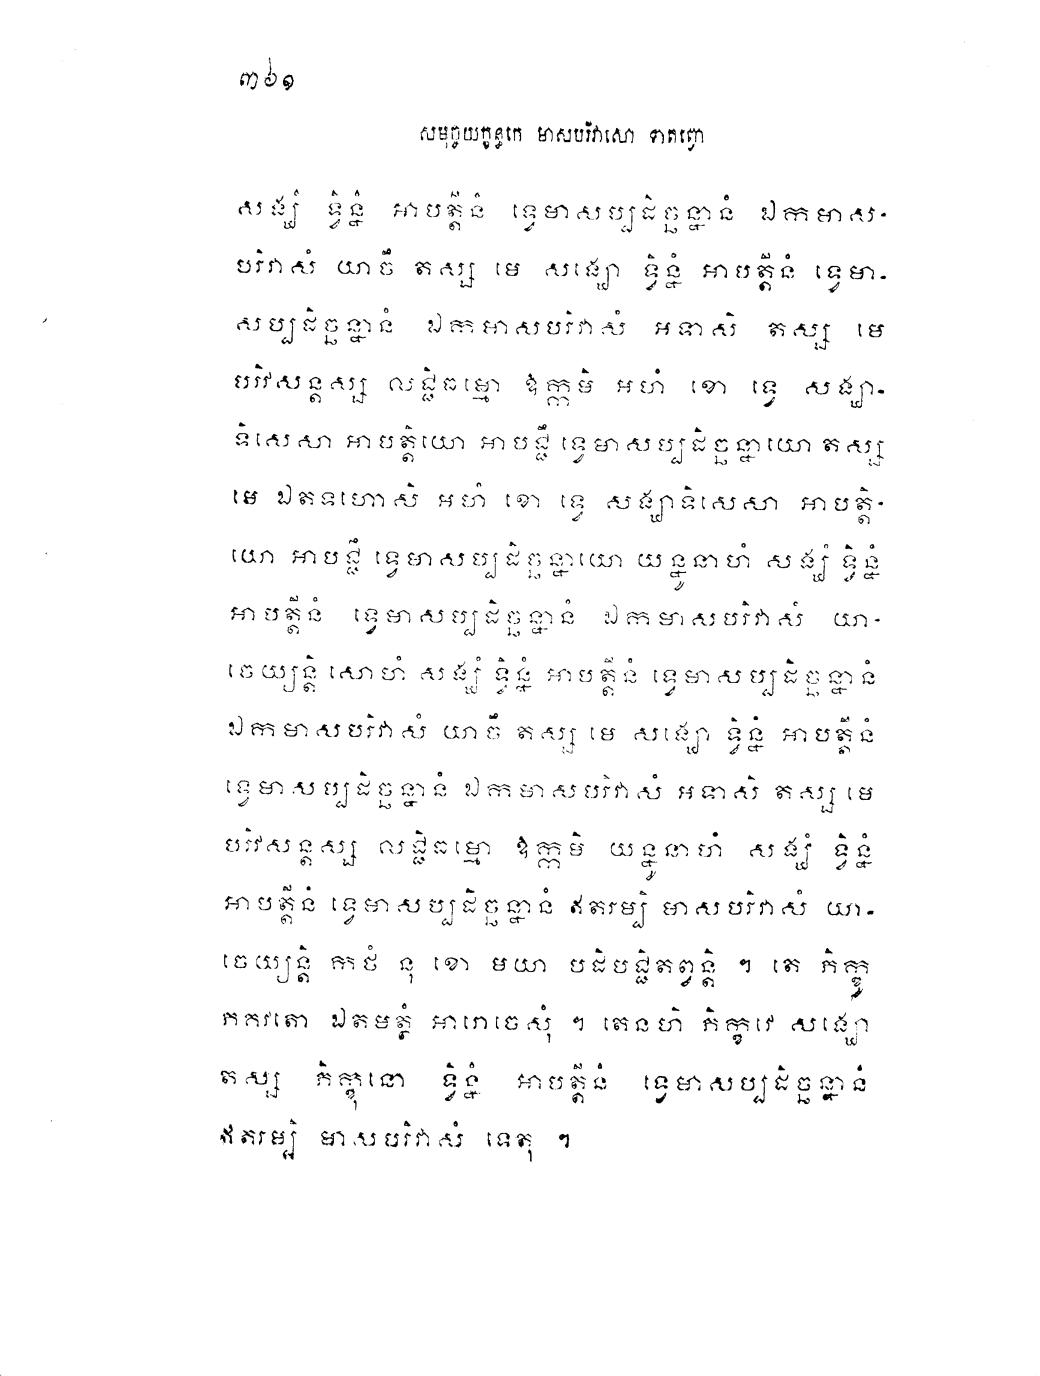 ៣៦១
សមុច្ចយក្ខន្ធកេ មាសបរិវាសោ ទាតព្វោ
សង្ឃំ ទ្វិន្នំ អាបត្តីនំ ទ្វេមាសប្បដិច្ឆន្នានំ ឯកមាស-
បរិវាសំ យាចឹ តស្ស មេ សង្ឃោ ទ្វិន្នំ អាបត្តីនំ ទ្វេមា-
សប្បដិច្ឆន្នានំ ឯកមាសបរិវាសំ អទាសិ តស្ស មេ
បរិវសន្តស្ស លជ្ជិធម្មោ ឱក្កមិ អហំ ខោ ទ្វេ សង្ឃា-
ទិសេសា អាបត្តិយោ អាបជ្ជឹ ទ្វេមាសប្បដិច្ឆន្នាយោ តស្ស
មេ ឯតទហោសិ អហំ ខោ ទ្វេ សង្ឃាទិសេសា អាបត្តិ-
យោ អាបជ្ជឹ ទ្វេមាសប្បដិច្ឆន្នាយោ យន្នូនាហំ សង្ឃំ ទ្វិន្នំ
អាបត្តីនំ ទ្វេមាសប្បដិច្ឆន្នានំ ឯកមាសបរិវាសំ យា-
ចេយ្យន្តិ សោហំ សង្ឃំ ទ្វិន្នំ អាបត្តីនំ ទ្វេមាសប្បដិច្ឆន្នានំ
ឯកមាសបរិវាសំ យាចឹ តស្ស មេ សង្ឃោ ទ្វិន្នំ អាបត្តីនំ
ទ្វេមាសប្បដិច្ឆន្នានំ ឯកមាសបរិវាសំ អទាសិ តស្ស មេ
បរិវសន្តស្ស លជ្ជិធម្មោ ឱក្កមិ យន្នូនាហំ សង្ឃំ ទ្វិន្នំ
អាបត្តីនំ ទ្វេមាសប្បដិច្ឆន្នានំ ឥតរម្បិ មាសបរិវាសំ យា-
ចេយ្យន្តិ កថំ នុ ខោ មយា បដិបជ្ជិតព្វន្តិ ។ តេ ភិក្ខូ
ភគវតោ ឯតមត្ថំ អារោចេសុំ ។ តេនហិ ភិក្ខវេ សង្ឃោ
តស្ស ភិក្ខុនោ ទ្វិន្នំ អាបត្តីនំ ទ្វេមាសប្បដិច្ឆន្នានំ
ឥតរម្បិ មាសបរិវាសំ ទេតុ ។